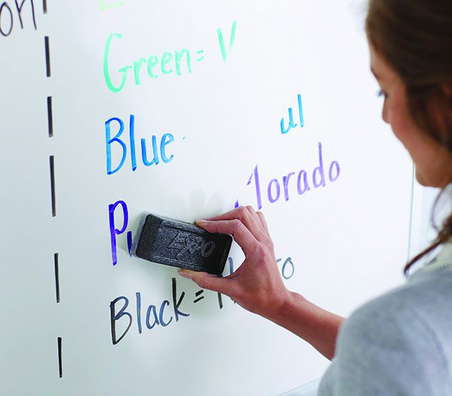 on
Green = V
Blue ul
P orado
EXPO
Black =